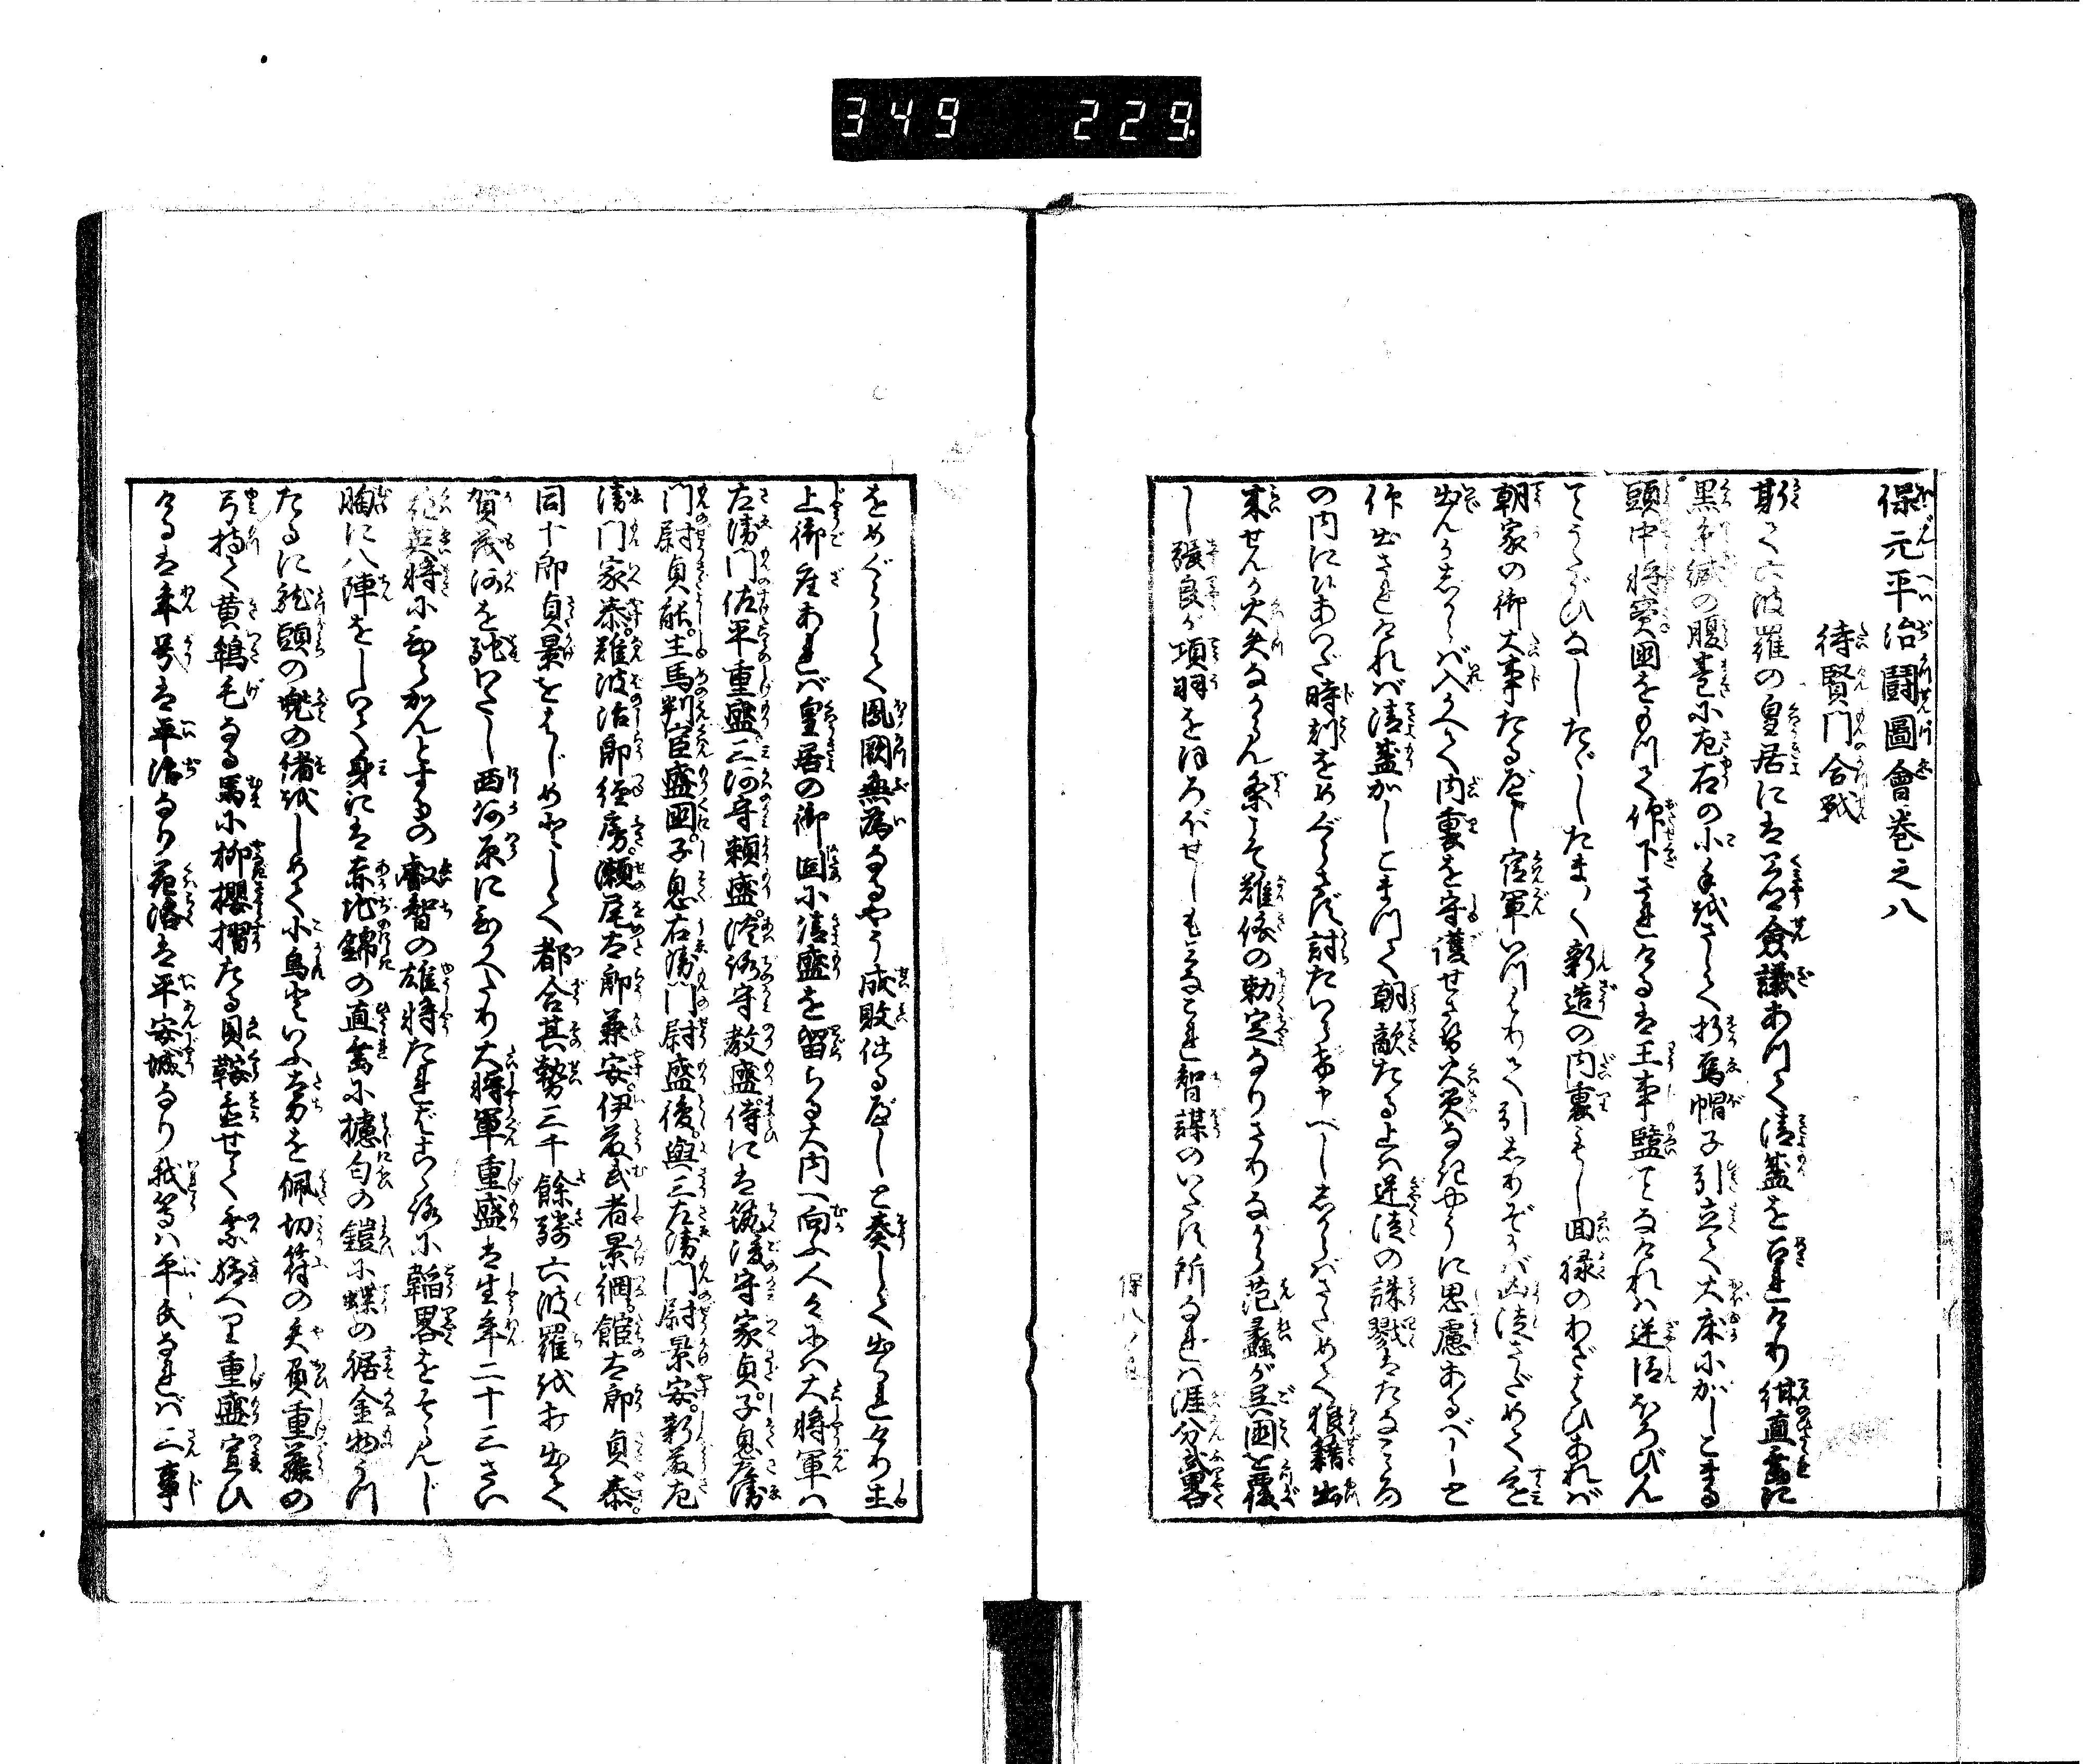 349 229
保元平治闘圖會巻之八
待賢門合戦
斯て六波羅の皇居には公卿僉議あつて清盛を召れけり紺直垂に
黒糸縅の腹巻に左右の小手をさして折烏帽子引立て大床にかしこまる
頭中将實国をもつて仰下されけるは王事盬ことなければ逆臣ほろびん
事うたがひなしたゞしたま〱新造の内裏もし回禄のわざはひあれば
朝家の御大事たるべし官軍いつはりて引しりぞかば凶徒さだめて進
出んかしからば入かへて内裏を守護せさせ火災なきやうに思慮あるべしと
仰出されければ清盛かしこまつて朝敵たる上は逆徒の誅戮は
の内に時刻をめぐらさず討たいらげ申べししからばさだめて狼藉出
来せんか火失なからん条こそ難儀の勅定なりさりながら范蠡が呉国を覆
し張良が項羽をほろぼせしもみなこれ智謀のいたす所なれば涯分武略
保八ノ
をめぐらして鳳闕無為なるやう成敗仕るべしと奏して出られけり主
上御座あれば皇居の御固に清盛を留らる大内へ向ふ人々には大将軍は
左衛門佐平重盛三河守頼盛淡路守教盛侍には筑後守家貞子息左衛
門尉貞能主馬判官盛国子息右衛門尉盛俊與三左衛門尉景安新藤左
衛門家泰難波治郎經房瀬尾太郎兼安伊藤武者景綱館太郎貞泰
同十郎貞景をはじめとして都合其勢三千餘騎六波羅を打出て
賀茂河を馳わたし西河原にひかへたり大将軍重盛は生年二十三さい
花英将に至らんとするの叡智の雄将たればころに韜略をそらんじ
胸に八陣をしいて身には赤地錦の直垂に櫨匂の鎧に蝶の裾金物うつ
たるに龍頭の兜の緒をしめて小烏といふ太刀を佩切符の矢負重籐の
弓持て黄鶺毛なる馬に柳櫻摺たる貝鞍置せて乗給へり重盛宣ひ
けるは年号は平治なり花洛は平安城なり我等は平氏なれば三事